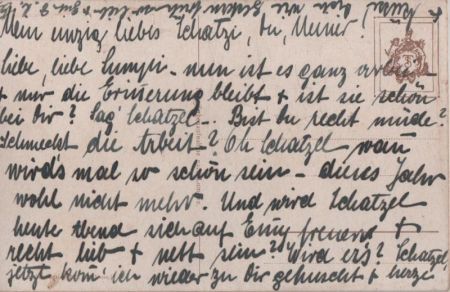 Mein einzig liebes Schatzi, Du, Meiner!
liebe, liebe Lumpi – nun ist es ganz vorbei
+ nur die Erinnerung bleibt + ist sie schön
bei Dir? Sag' Schatzel – Bist Du recht müde?
Schmeckt die Arbeit? Oh Schatzel wann
wird's mal so schön sein – dieses Jahr
wohl nicht mehr. Und wird Schatzel
heute Abend sich auf freuen +
recht lieb + nett sein? Wird er's? Schatzel,
jetzt kom' ich wieder zu Dir gehuscht + herze